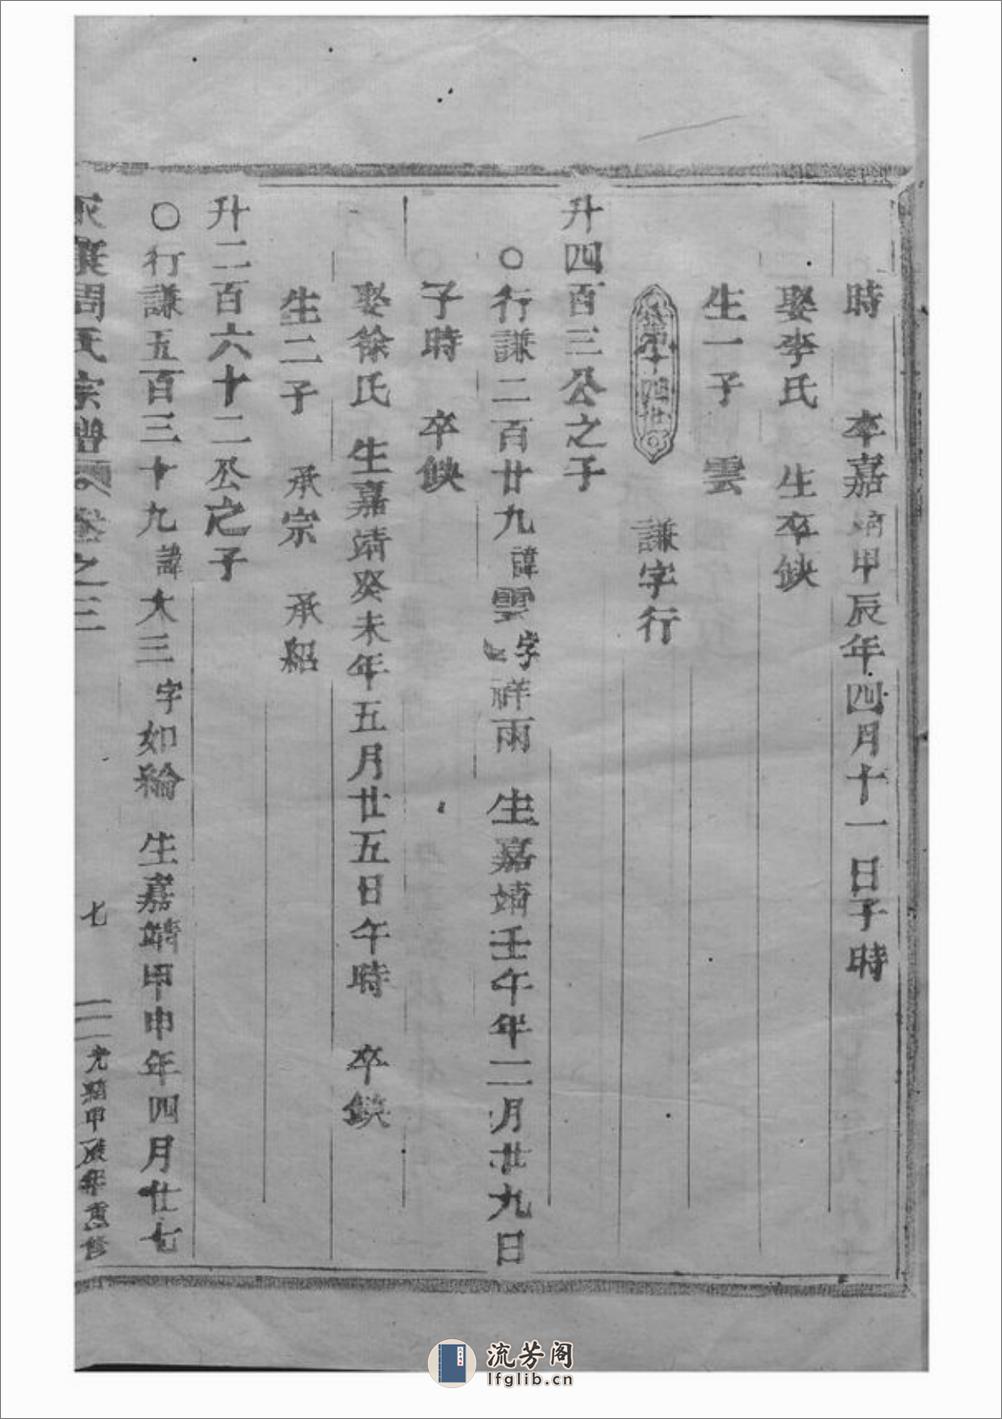 時 卒嘉靖甲辰年四月十一日子時
娶李氏 生卒缺
生一子 雲
第十四世 謙字行
升四百三公之子
○行謙二百廿九諱雲字祥雨 生嘉靖壬午年二月廿九日
子時 卒缺
娶徐氏 生嘉靖癸未年五月廿五日午時 卒缺
生二子 承宗 承紹
升二百六十二公之子
○行謙五百三十九諱大三字如綸 生嘉靖甲申年四月廿七
周氏宗譜 卷之三 七 光緒甲辰年重修
流芳阁
lfglib.cn